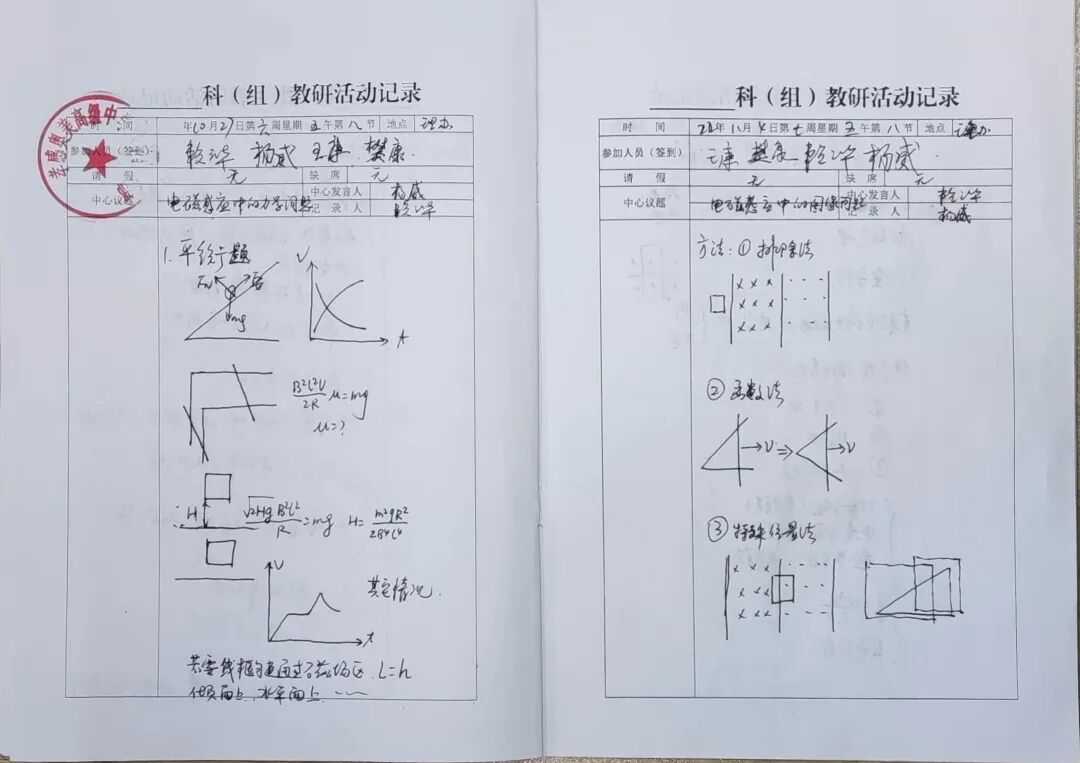 科（组）教研活动记录
时 间 年10月27日第六周星期五午第八节 地点 理办
参加人员（签到） 乾华 杨威 王康 樊康
请 假 无 缺 席 无
中心议题 电磁感应中的力学问题 中心发言人 杨威
记 录 人
1. 平衡问题
mg
V
t
B²L²V/2R μ=mg
μ=?
H
√2Hg B²L²/R=mg H=m²gR²/2B⁴L⁴
V
其它情况
t
若零线框匀速通过了磁场区. L=h
倾面上、水平面上……
科（组）教研活动记录
时 间 22年11月4日第七周星期五午第八节 地点 理办
参加人员（签到） 王康 樊康 杨威
请 假 无 缺 席 无
中心议题 电磁感应中的图像问题 中心发言人
记 录 人 杨威
方法：① 排除法
② 函数法
V ⇒ V
③ 特殊位置法